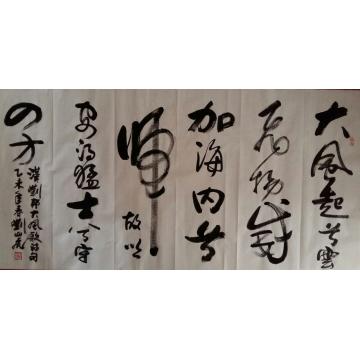 大風起兮雲
飛揚威
加海内兮
歸故鄉
安得猛士兮守
四方
漢劉邦大風歌詩句
乙未年春劉